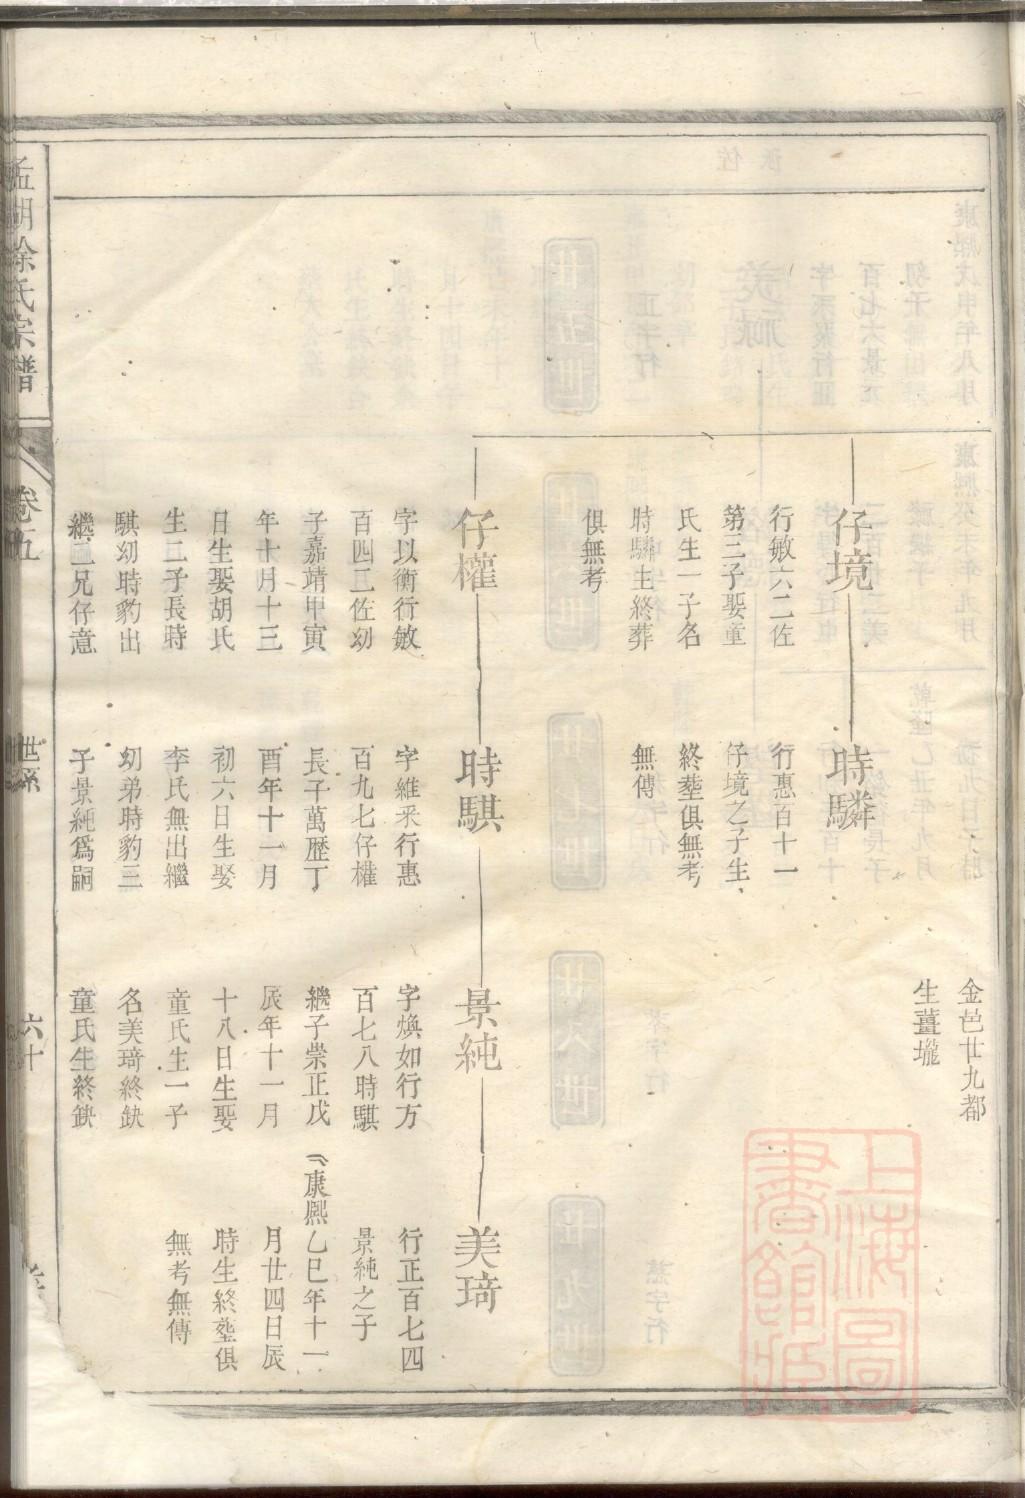 金邑廿九都
生薑壠
仔境
行敏六二佐
第三子娶童
氏生一子名
時驎生終葬
俱無考
時驎
行惠百十一
仔境之子生
終塟俱無考
無傳
仔權
字以衡行敏
百四二佐幼
子嘉靖甲寅
年十月十三
日生娶胡氏
生二子長時
騏幼時豹出
繼二兄仔意
時騏
字維釆行惠
百九七仔權
長子萬歷丁
酉年十一月
初六日生娶
李氏無出繼
幼弟時豹三
子景純爲嗣
景純
字煥如行方
百七八時騏
繼子崇正戊
辰年十一月
十八日生娶
童氏生一子
名美琦終缺
童氏生終缺
美琦
行正百七四
景純之子
康熙乙巳年十一
月廿四日辰
時生終塟俱
無考無傳
湖徐氏宗譜
卷五
世系
六十
上海圖書館藏